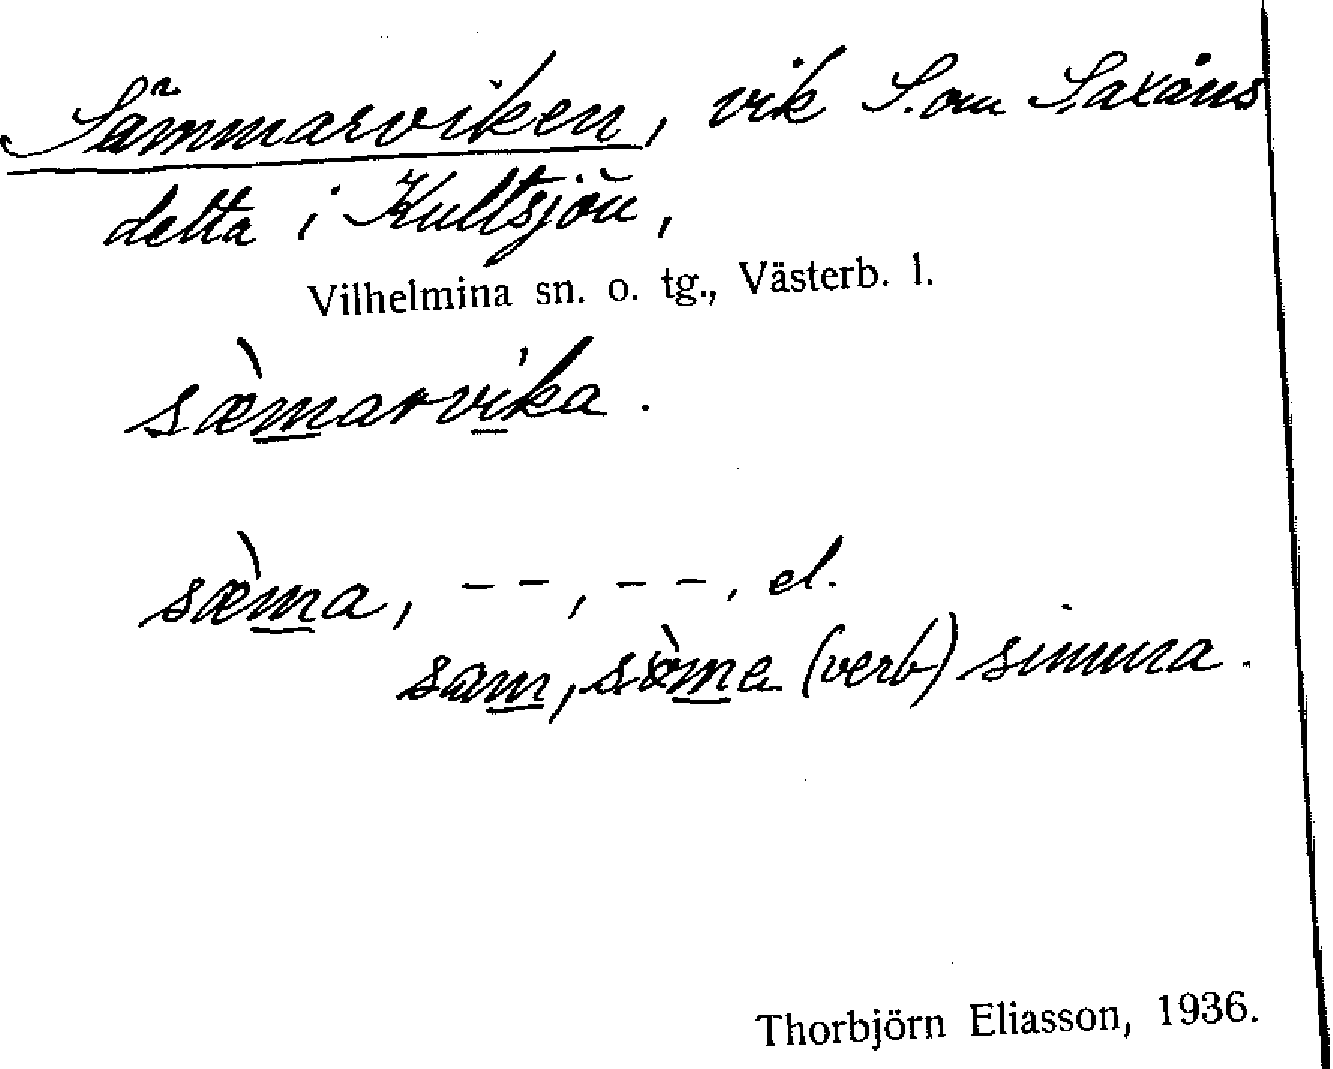 Sämmarviken, vik S. om Saxåns
delta i Kultsjön,
Vilhelmina sn. o. tg., Västerb. l.
sæ̀marvika.
sæ̀ma, – –, – –, el.
sam, sòma (verb) simma.
Thorbjörn Eliasson, 1936.